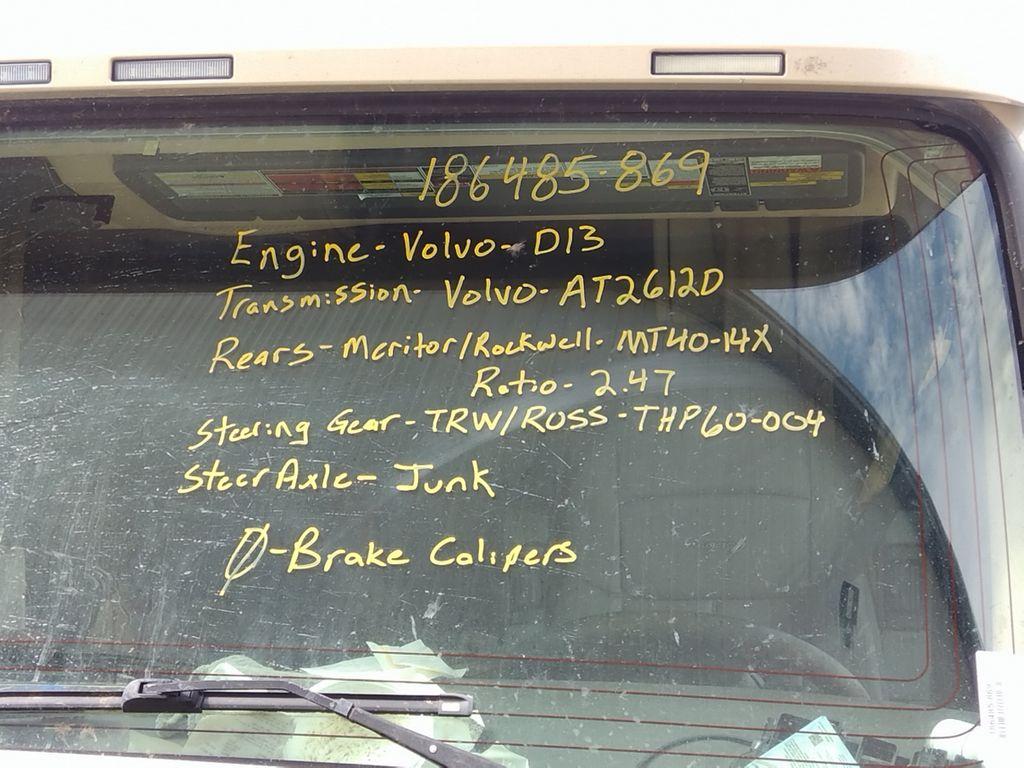 186485-869
Engine- Volvo- D13
Transmission- Volvo- AT2612D
Rears- Meritor/Rockwell- MT40-14X
Ratio- 2.47
Steering Gear- TRW/ROSS- THP60-004
Steer Axle- Junk
Ø-Brake Calipers
186485-869